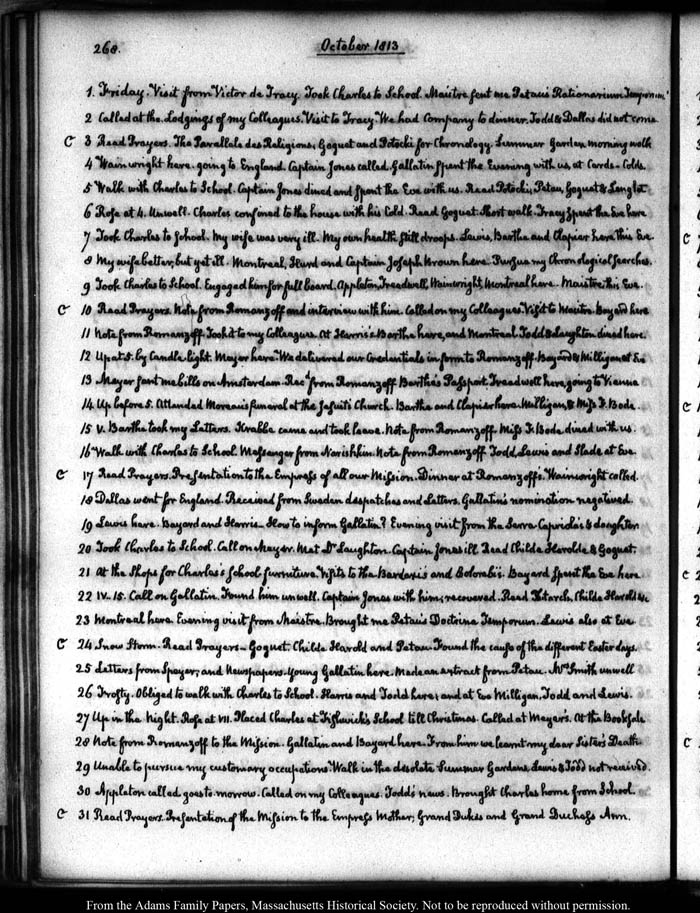 268.
October 1813
1. Friday. Visit from Victor de Tracy. Took Charles to School. Maistre sent me Petau's Rationarium Temporum
2 Called at the Lodgings of my Colleagues. Visit to Tracy. We had Company to dinner. Todd & Dallas did not come
C 3 Read Prayers. The Parallele des Religions; Goguet and Potocki for Chronology. Summer Garden morning walk
4 Wainwright here. going to England. Captain Jones called. Gallatin spent the Evening with us, at Cards. Colds.
5 Walk with Charles to School. Captain Jones dined and spent the Eve with us. Read Potocki, Petau, Goguet & Langlet
6 Rose at 4. Unwell. Charles confined to the house with his Cold. Read Goguet. Short walk. Tracy spent the Eve here
7 Took Charles to School. My wife was very ill. My own health still droops. Lewis, Barthe and Clapier here this Eve.
8 My wife better, but yet ill. Montreal, Hurd and Captain Joseph Brown here. Pursue my Chronological searches.
9 Took Charles to School. Engaged him for full board. Appleton, Treadwell, Wainwright, Montreal here. Maistre this Eve.
C 10 Read Prayers. Note from Romanzoff and interview with him. Called on my Colleagues. Visit to Maistre. Bayard here
11 Note from Romanzoff. Took it to my Colleagues. At Harris's. Barthe here, and Montreal. Todd & Laughton dined here.
12 Up at 5. by Candle light. Meyer here. We delivered our Credentials in form to Romanzoff. Bayard & Milligan at Eve
13 Meyer sent me bills on Amsterdam. Recd from Romanzoff Barthe's Passport. Treadwell here, going to Vienna
14. Up before 5. Attended Moreau's funeral at the Jesuits Church. Barthe and Clapier here. Milligan, & Miss F. Bode.
15 V. Barthe took my Letters. Krabbe came and took leave. Note from Romanzoff. Miss F. Bode dined with us.
16 Walk with Charles to School. Messenger from Narishkin. Note from Romanzoff. Todd, Lewis and Slade at Eve.
C 17 Read Prayers. Presentation to the Empress of all our Mission. Dinner at Romanzoff's. Wainwright called.
18 Dallas went for England. Received from Sweden despatches and Letters. Gallatin's nomination negatived.
19 Lewis here. Bayard and Harris. How to inform Gallatin? Evening visit from the Serra Capriola's & daughter
20 Took Charles to School. Call on Meyer. Met Dr Laughton. Captain Jones ill. Read Childe Harolde & Goguet.
21 At the Shops for Charles's School furniture. Visits to the Bardaxis and Colombi's. Bayard Spent the Eve here
22 IV. 15. Call on Gallatin. Found him unwell. Captain Jones with him; recovered. Read Plutarch, Childe Harold &c
23 Montreal here. Evening visit from Maistre. Brought me Petau's Doctrina Temporum. Lewis also at Eve
C 24 Snow Storm. Read Prayers—Goguet. Childe Harold and Petau. Found the cause of the different Easter days.
25 Letters from Speyer; and Newspapers. Young Gallatin here. Made an extract from Petau. Mrs Smith unwell
26 Frosty. Obliged to walk with Charles to School. Harris and Todd here; and at Eve Milligan, Todd and Lewis.
27 Up in the Night. Rose at VII. Placed Charles at Fishwick's School till Christmas. Called at Meyer's. At the Booksale
28 Note from Romanzoff to the Mission. Gallatin and Bayard here. From him we learnt my dear Sister's Death
29 Unable to pursue my customary occupations. Walk in the desolate Summer Gardens. Lewis & Todd not received.
30 Appleton called goes to morrow. Called on my Colleagues. Todd's news. Brought Charles home from School.
C 31 Read Prayers. Presentation of the Mission to the Empress Mother; Grand Dukes and Grand Duchess Ann.
From the Adams Family Papers, Massachusetts Historical Society. Not to be reproduced without permission.